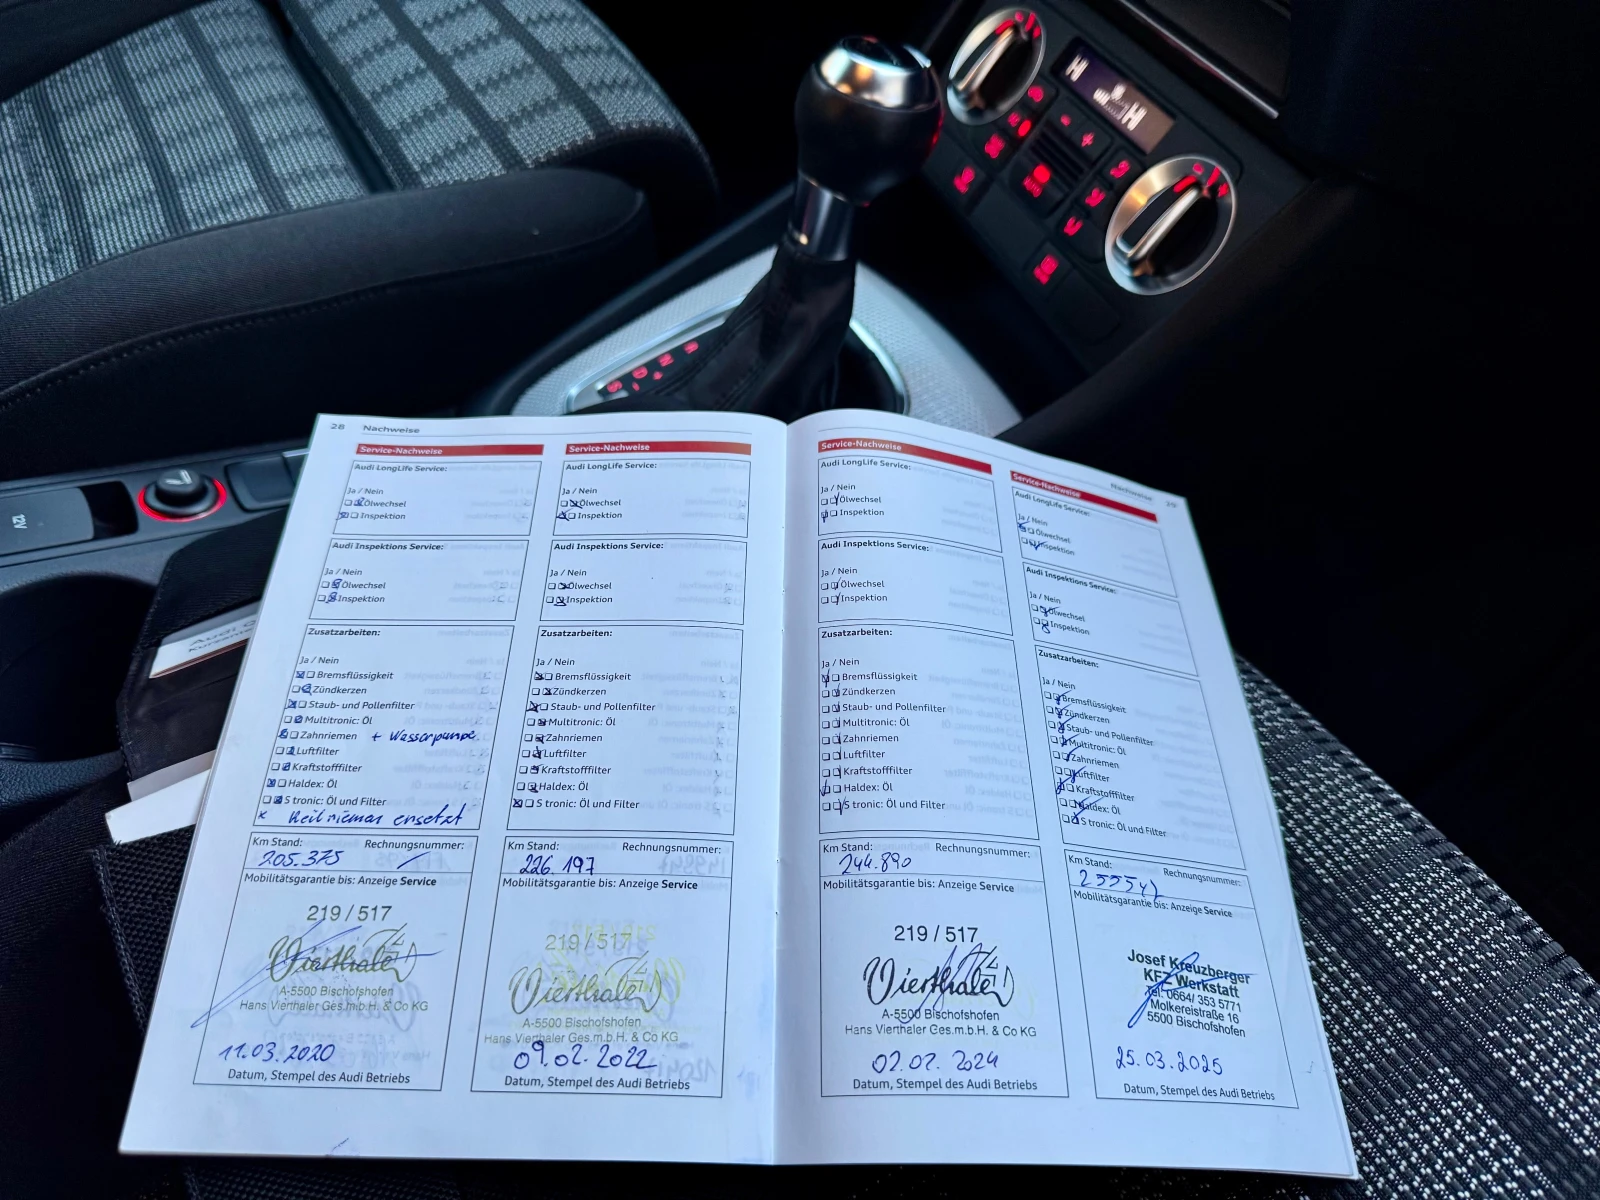 28 Nachweise
Service-Nachweise
Audi LongLife Service:
Ja / Nein
Ölwechsel
Inspektion
Audi Inspektions Service:
Ja / Nein
Ölwechsel
Inspektion
Zusatzarbeiten:
Ja / Nein
Bremsflüssigkeit
Zündkerzen
Staub- und Pollenfilter
Multitronic: Öl
Zahnriemen + Wasserpumpe
Luftfilter
Kraftstofffilter
Haldex: Öl
S tronic: Öl und Filter
x Keilriemen ersetzt
Km Stand: Rechnungsnummer:
205.375
Mobilitätsgarantie bis: Anzeige Service
219 / 517
Vierthaler
A-5500 Bischofshofen
Hans Vierthaler Ges.m.b.H. & Co KG
11.03.2020
Datum, Stempel des Audi Betriebs
Service-Nachweise
Audi LongLife Service:
Ja / Nein
Ölwechsel
Inspektion
Audi Inspektions Service:
Ja / Nein
Ölwechsel
Inspektion
Zusatzarbeiten:
Ja / Nein
Bremsflüssigkeit
Zündkerzen
Staub- und Pollenfilter
Multitronic: Öl
Zahnriemen
Luftfilter
Kraftstofffilter
Haldex: Öl
S tronic: Öl und Filter
Km Stand: Rechnungsnummer:
226.197
Mobilitätsgarantie bis: Anzeige Service
219 / 517
Vierthaler
A-5500 Bischofshofen
Hans Vierthaler Ges.m.b.H. & Co KG
09.02.2022
Datum, Stempel des Audi Betriebs
Service-Nachweise
Audi LongLife Service:
Ja / Nein
Ölwechsel
Inspektion
Audi Inspektions Service:
Ja / Nein
Ölwechsel
Inspektion
Zusatzarbeiten:
Ja / Nein
Bremsflüssigkeit
Zündkerzen
Staub- und Pollenfilter
Multitronic: Öl
Zahnriemen
Luftfilter
Kraftstofffilter
Haldex: Öl
S tronic: Öl und Filter
Km Stand: Rechnungsnummer:
244.890
Mobilitätsgarantie bis: Anzeige Service
219 / 517
Vierthaler
A-5500 Bischofshofen
Hans Vierthaler Ges.m.b.H. & Co KG
02.02.2024
Datum, Stempel des Audi Betriebs
Nachweise 29
Service-Nachweise
Audi LongLife Service:
Ja / Nein
Ölwechsel
Inspektion
Audi Inspektions Service:
Ja / Nein
Ölwechsel
Inspektion
Zusatzarbeiten:
Ja / Nein
Bremsflüssigkeit
Zündkerzen
Staub- und Pollenfilter
Multitronic: Öl
Zahnriemen
Luftfilter
Kraftstofffilter
Haldex: Öl
S tronic: Öl und Filter
Km Stand: Rechnungsnummer:
Mobilitätsgarantie bis: Anzeige Service
Josef Kreuzberger
KFZ Werkstatt
Tel. 0664/ 353 5771
Molkereistraße 16
5500 Bischofshofen
25.03.2025
Datum, Stempel des Audi Betriebs
12V
Audi
R
N
D
S
HI
HI
AUTO